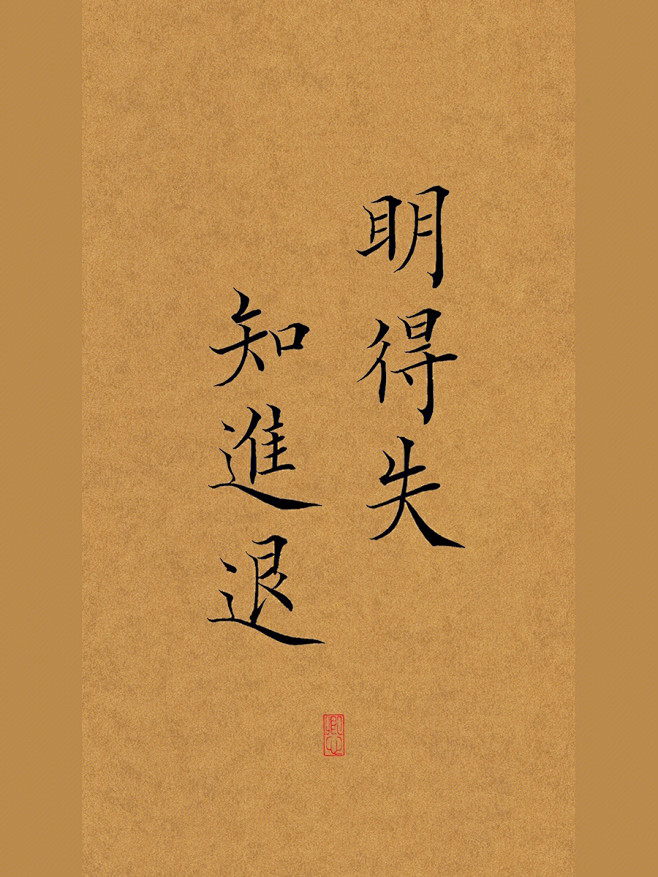 明得失
知進退